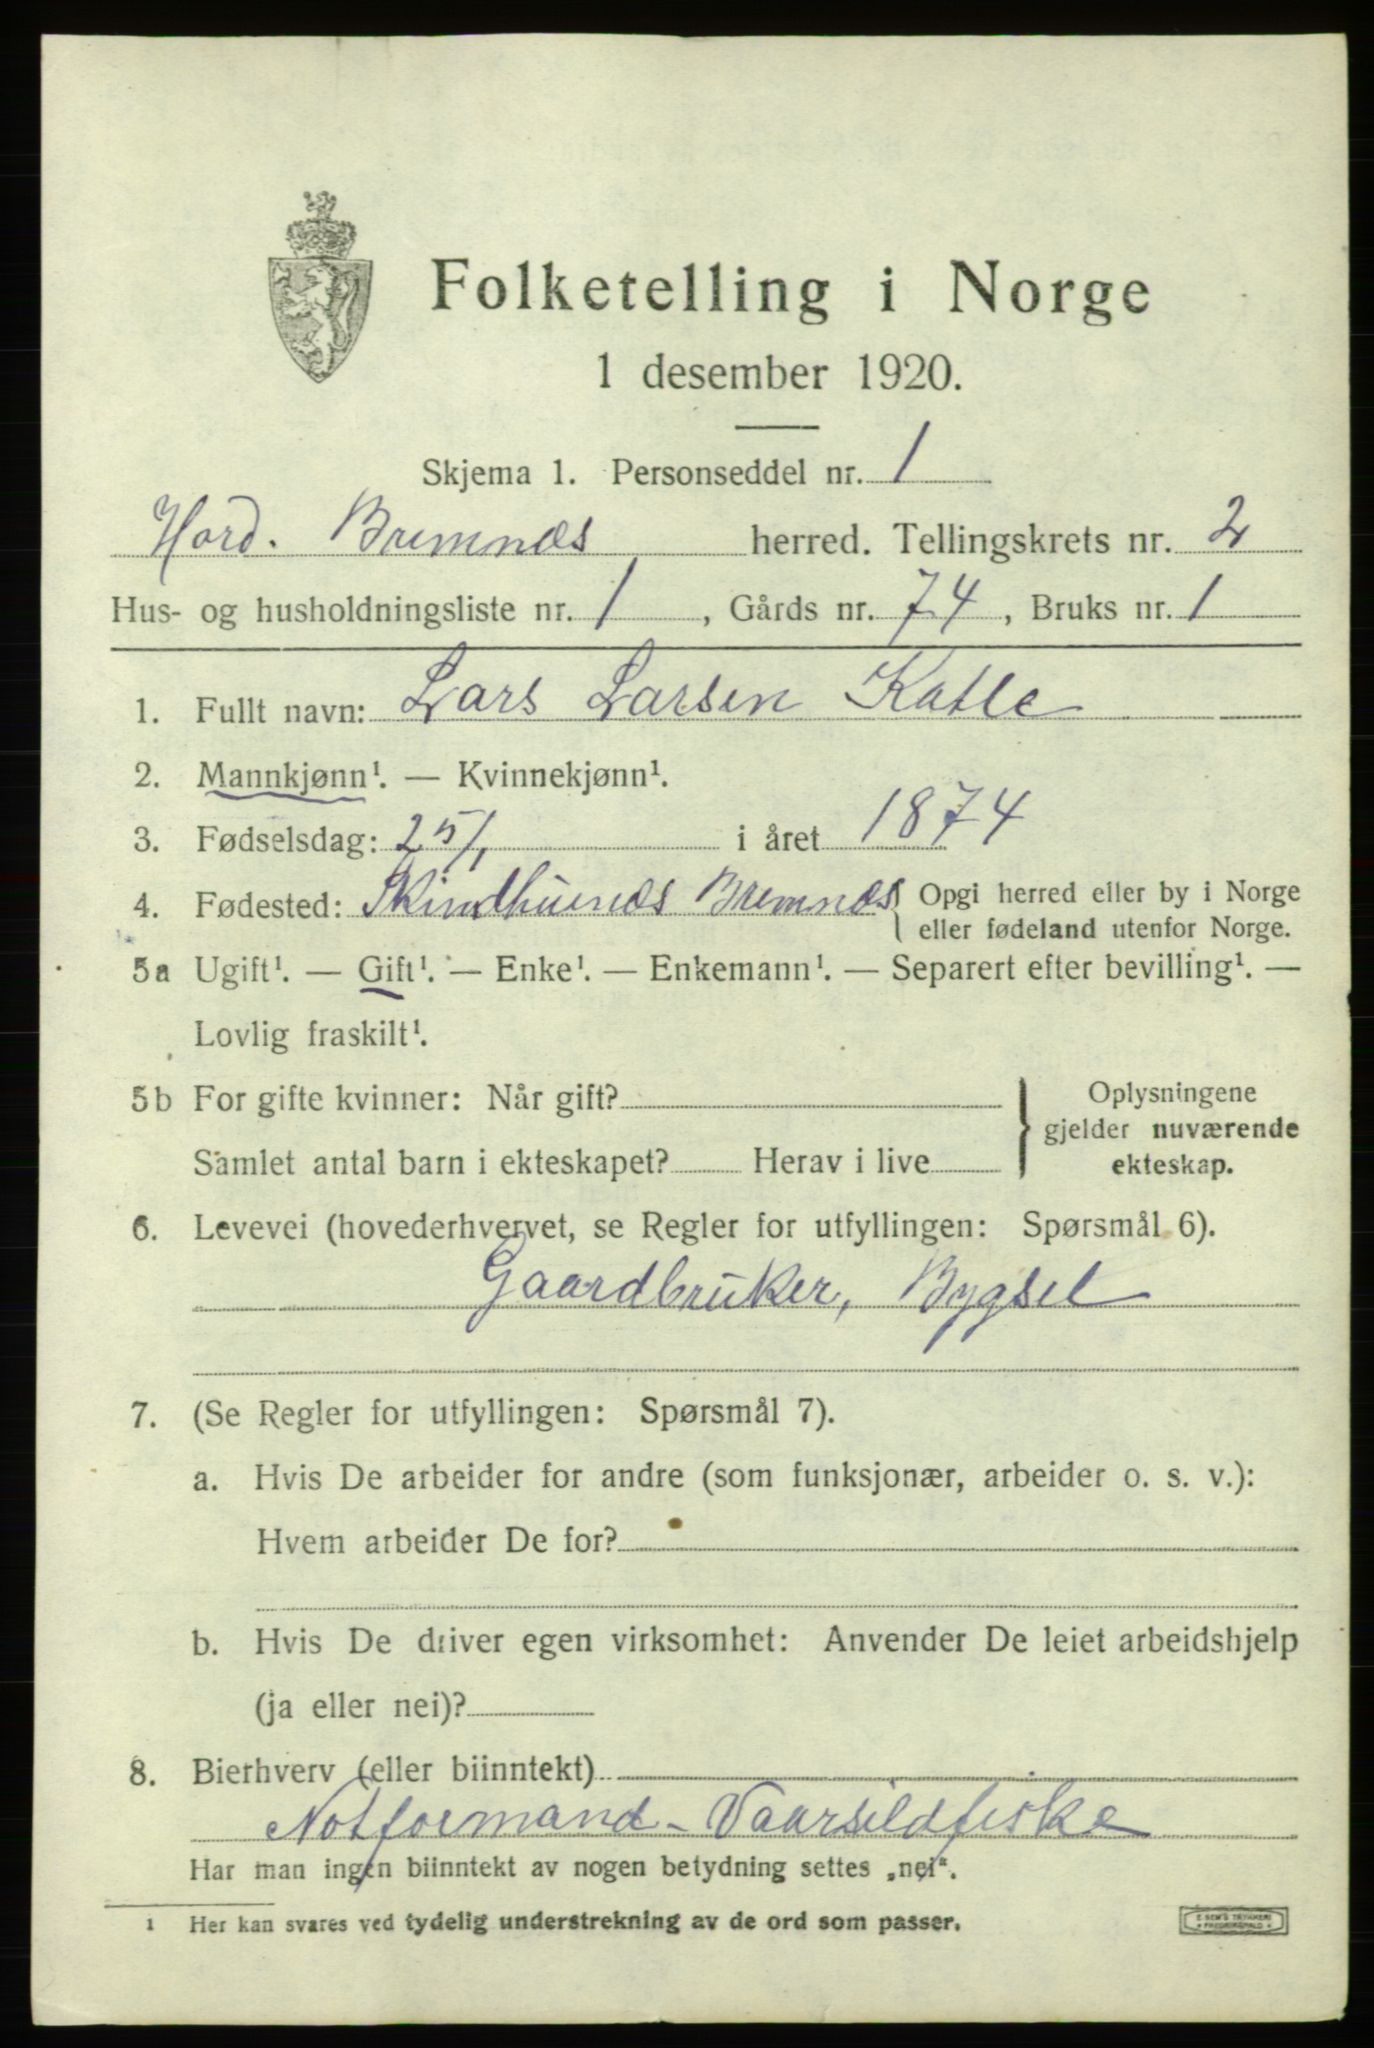 Folketelling i Norge
1 desember 1920.
Skjema 1. Personseddel nr. 1
Hord. Bremnæs herred. Tellingskrets nr. 2
Hus- og husholdningsliste nr. 1, Gårds nr. 74, Bruks nr. 1
1. Fullt navn: Lars Larsen Katle
2. Mannkjønn¹. — Kvinnekjønn¹.
3. Fødselsdag: 25/1 i året 1874
4. Fødested: Bremnæs { Opgi herred eller by i Norge
eller fødeland utenfor Norge.
5a Ugift¹. — Gift¹. — Enke¹. — Enkemann¹. — Separert efter bevilling¹. —
Lovlig fraskilt¹.
5b For gifte kvinner: Når gift? } Oplysningene
gjelder nuværende
Samlet antal barn i ekteskapet? Herav i live ekteskap.
6. Levevei (hovederhvervet, se Regler for utfyllingen: Spørsmål 6).
Gaardbruker, Bygsel
7. (Se Regler for utfyllingen: Spørsmål 7).
a. Hvis De arbeider for andre (som funksjonær, arbeider o. s. v.):
Hvem arbeider De for?
b. Hvis De driver egen virksomhet: Anvender De leiet arbeidshjelp
(ja eller nei)?
8. Bierhverv (eller biinntekt)
Notformand - Vaarsildfiske
Har man ingen biinntekt av nogen betydning settes „nei“.
1 Her kan svares ved tydelig understrekning av de ord som passer.